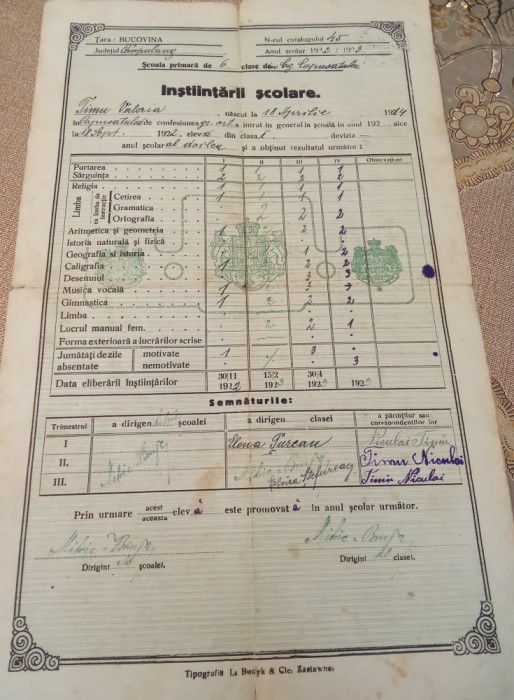 Țara: BUCOVINA
N-rul catalogului 45
Județul Câmpulung
Anul școlar 1922 / 1923
Școala primară de 6 clase din
Înștiințării școlare.
Timu Valeria, născut la 18 Aprilie 1914
în de confesiunea gr. ort. a intrat în general la școală în anul 192 , aice
la 18 Sept. 1922, elevă din clasa I devizia —
anul școlar al doilea și a obținut rezultatul următor:
I II III IV Observațiuni
Purtarea 1 1 1 1
Sârguința 2 2 2 2
Religia 1 1 1 1
Limba
ca limba de instrucție
Cetirea 1 1 1 1
Gramatica
Ortografia 2 2
Aritmetica și geometria 1 2 2
Istoria naturală și fizică
Geografia și istoria 1 2
Caligrafia 1 2 2
Desemnul 2 3
Musica vocală 1
Gimnastica 1 2 2 2
Limba
Lucrul manual fem. 2 2 1
Forma exterioară a lucrărilor scrise
Jumătăți de zile absentate
motivate 1 3
nemotivate 3
Data eliberării înștiințărilor 30/11 1922 15/2 1923 30/4 1923 192
Semnăturile:
Trimestrul
a dirigen școalei
a dirigen clasei
a părinților sau corespondenților lor
I Elena Țurcan
II. Timu Niculai
III. Timu Niculai
Prin urmare acest aceasta elevă este promovată în anul școlar următor.
Dirigint școalei.
Dirigint clasei.
Tipografie L. & Cie. Zastawna